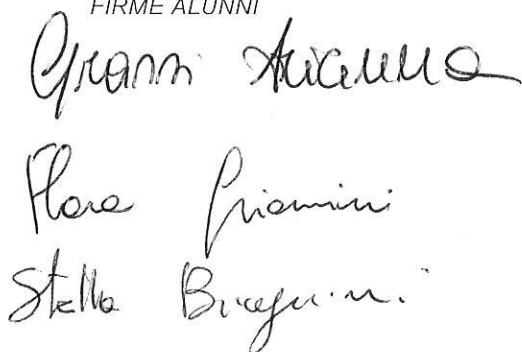 FIRME ALUNNI
Grassi Arianna
Flora Giannini
Stella